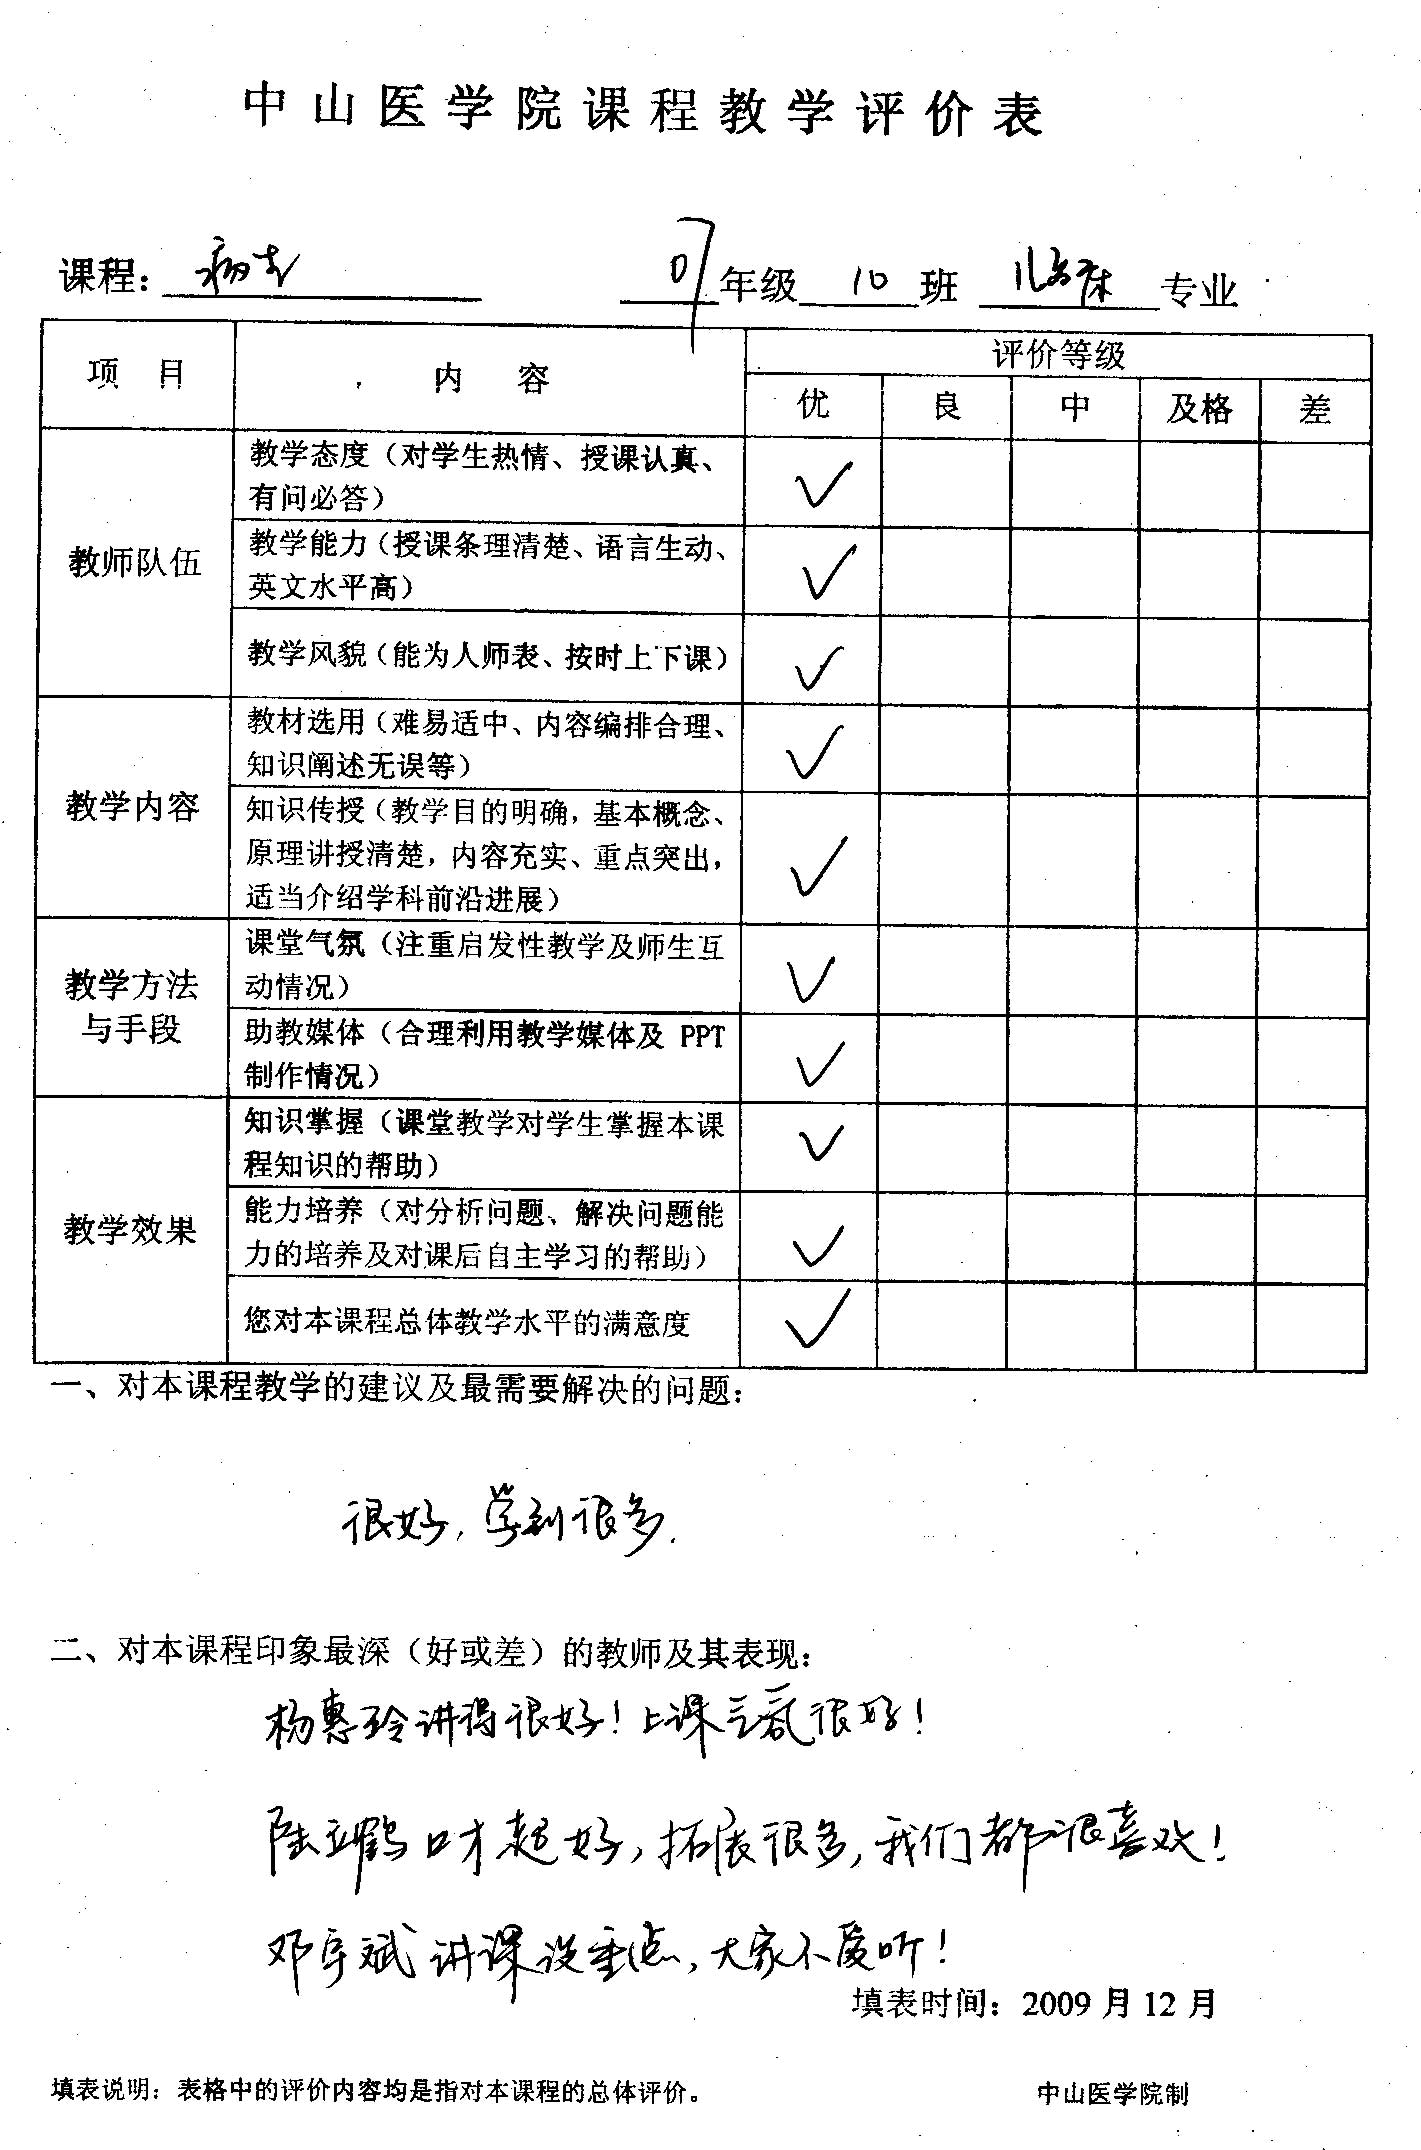 中山医学院课程教学评价表
课程：病生 07年级 10 班 临床 专业
项 目 内 容 评价等级
优 良 中 及格 差
教师队伍
教学态度（对学生热情、授课认真、
有问必答） ✓
教学能力（授课条理清楚、语言生动、
英文水平高） ✓
教学风貌（能为人师表、按时上下课） ✓
教学内容
教材选用（难易适中、内容编排合理、
知识阐述无误等） ✓
知识传授（教学目的明确，基本概念、
原理讲授清楚，内容充实、重点突出，
适当介绍学科前沿进展） ✓
教学方法
与手段
课堂气氛（注重启发性教学及师生互
动情况） ✓
助教媒体（合理利用教学媒体及 PPT
制作情况） ✓
教学效果
知识掌握（课堂教学对学生掌握本课
程知识的帮助） ✓
能力培养（对分析问题、解决问题能
力的培养及对课后自主学习的帮助） ✓
您对本课程总体教学水平的满意度 ✓
一、对本课程教学的建议及最需要解决的问题：
很好，学到很多.
二、对本课程印象最深（好或差）的教师及其表现：
杨惠玲讲得很好！上课气氛很好！
陆立鹤口才超好，拓展很多，我们都很喜欢！
邓宇斌讲课没重点，大家不爱听！
填表时间：2009 月 12 月
填表说明：表格中的评价内容均是指对本课程的总体评价。 中山医学院制